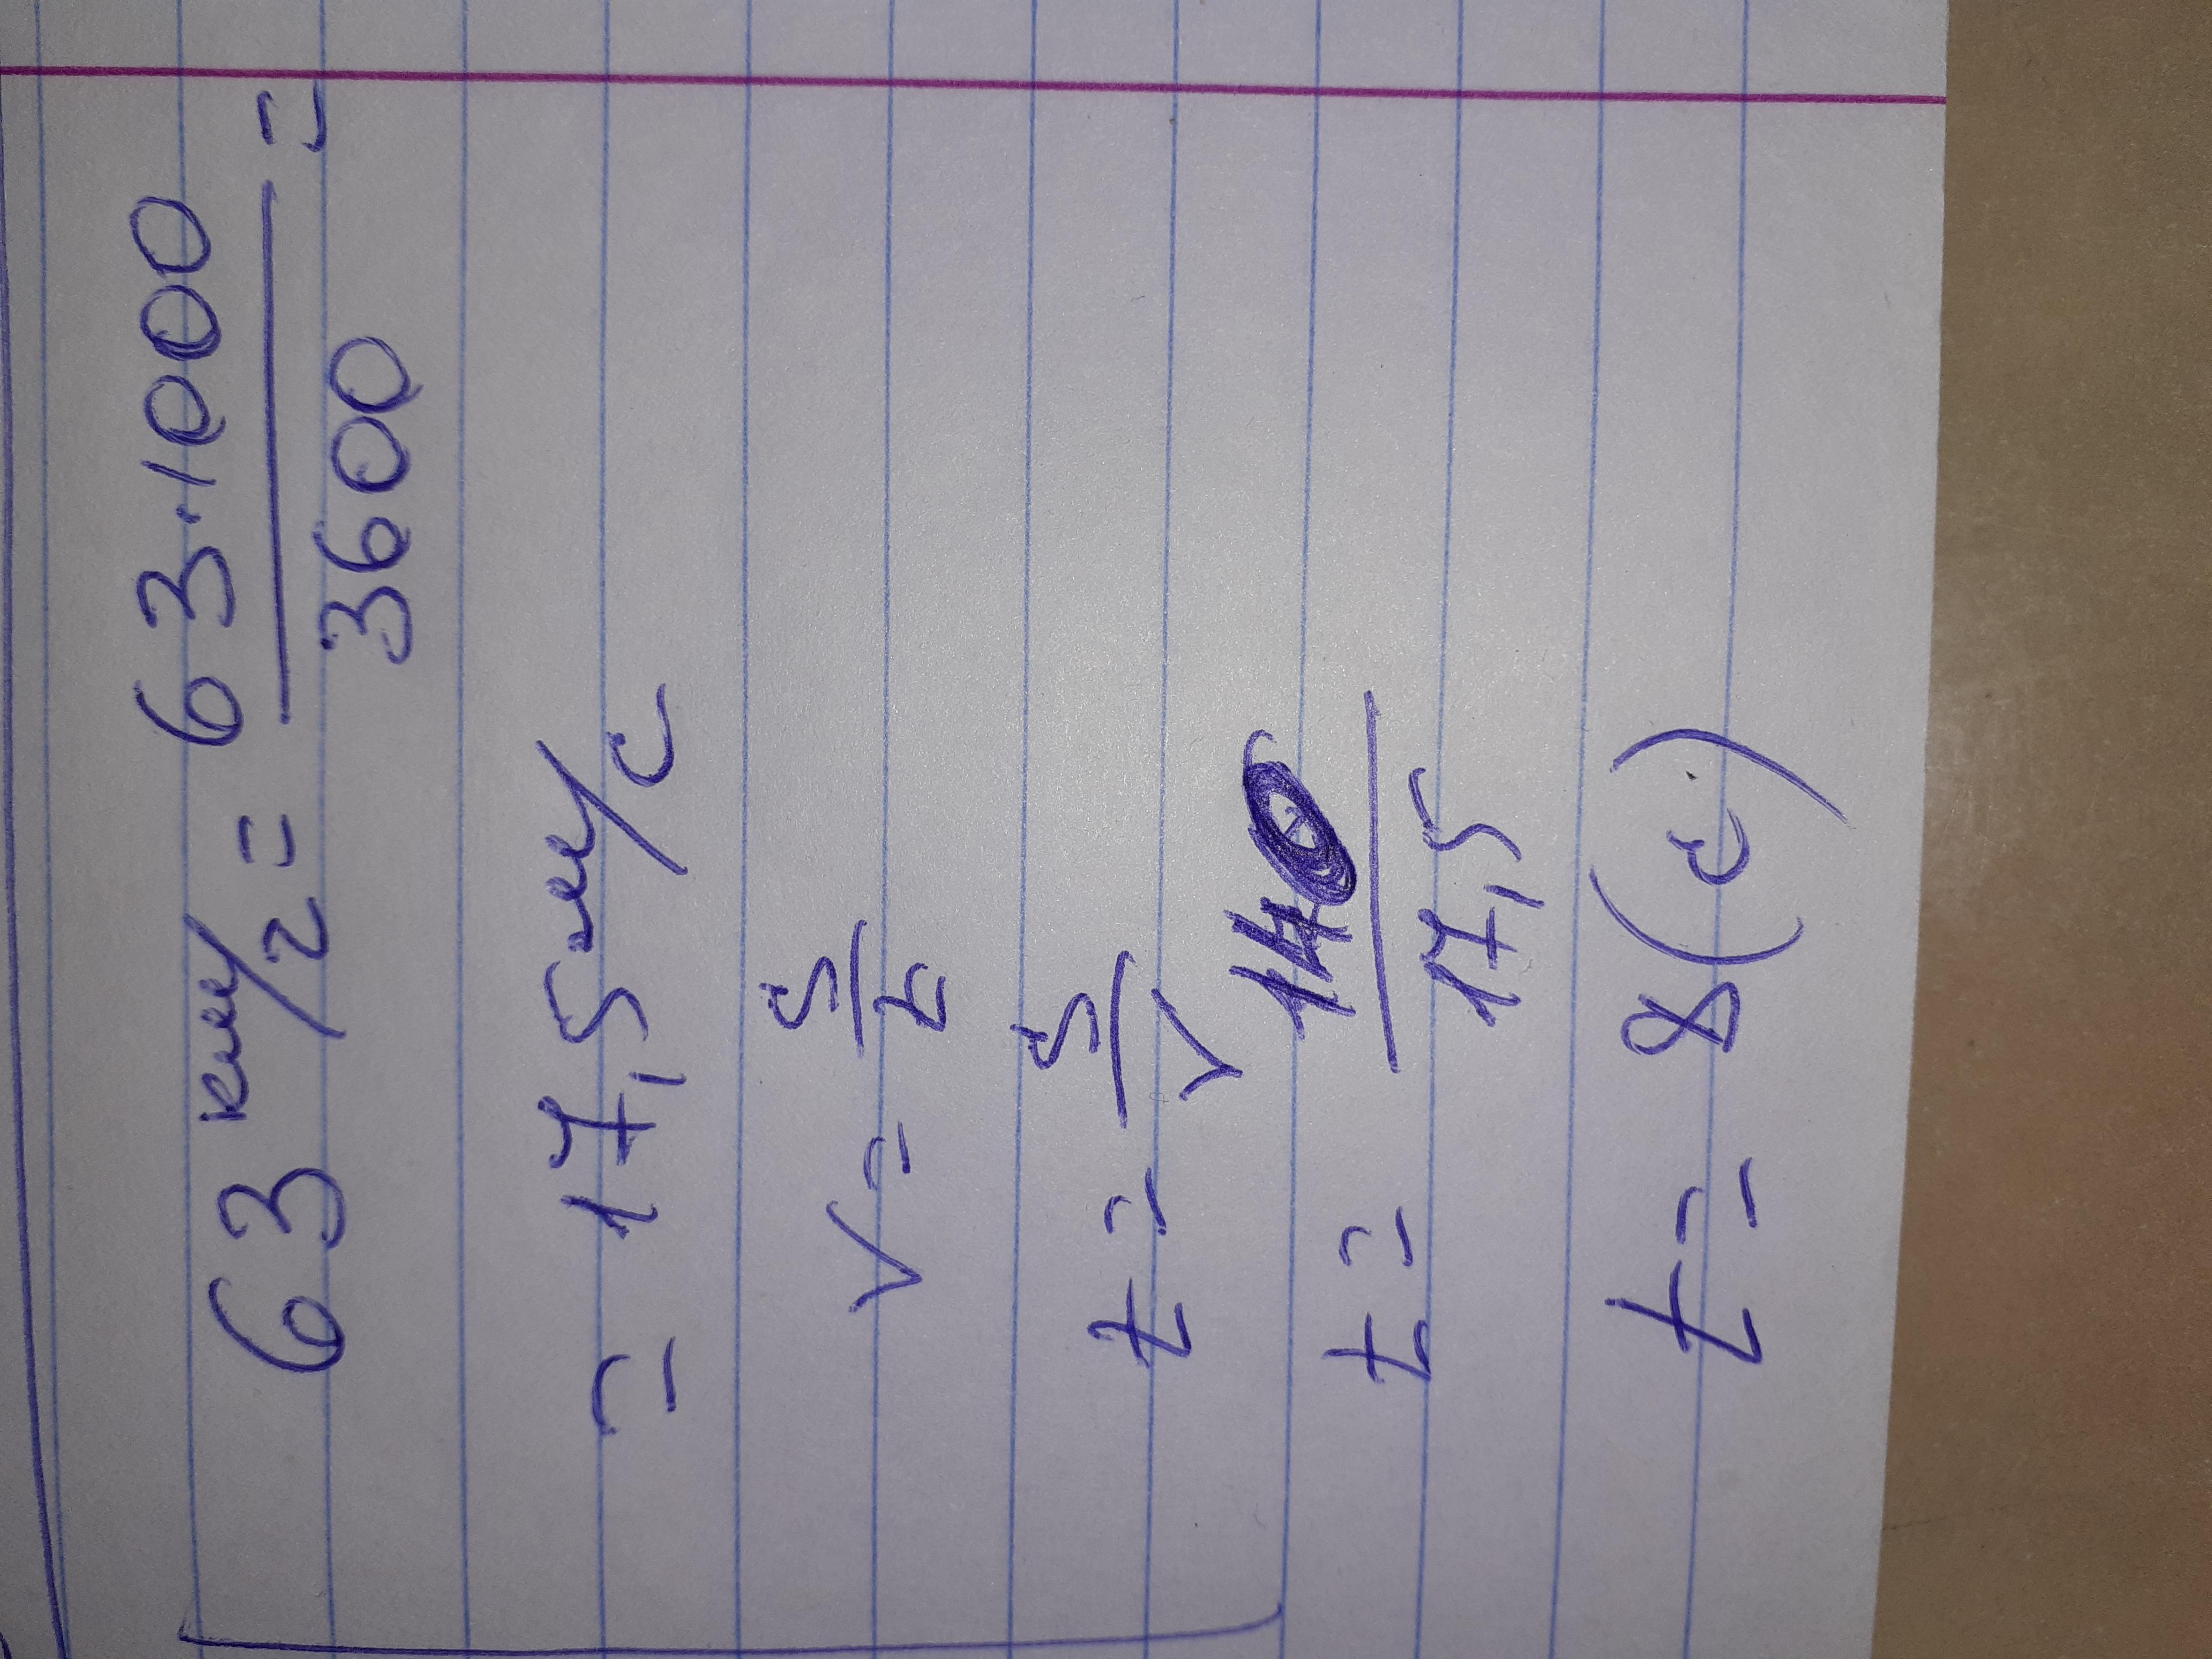 63 км/г = 63·1000/3600 =
= 17,5 м/с
v = s/t
t = s/v
t = 140/17,5
t = 8(c)